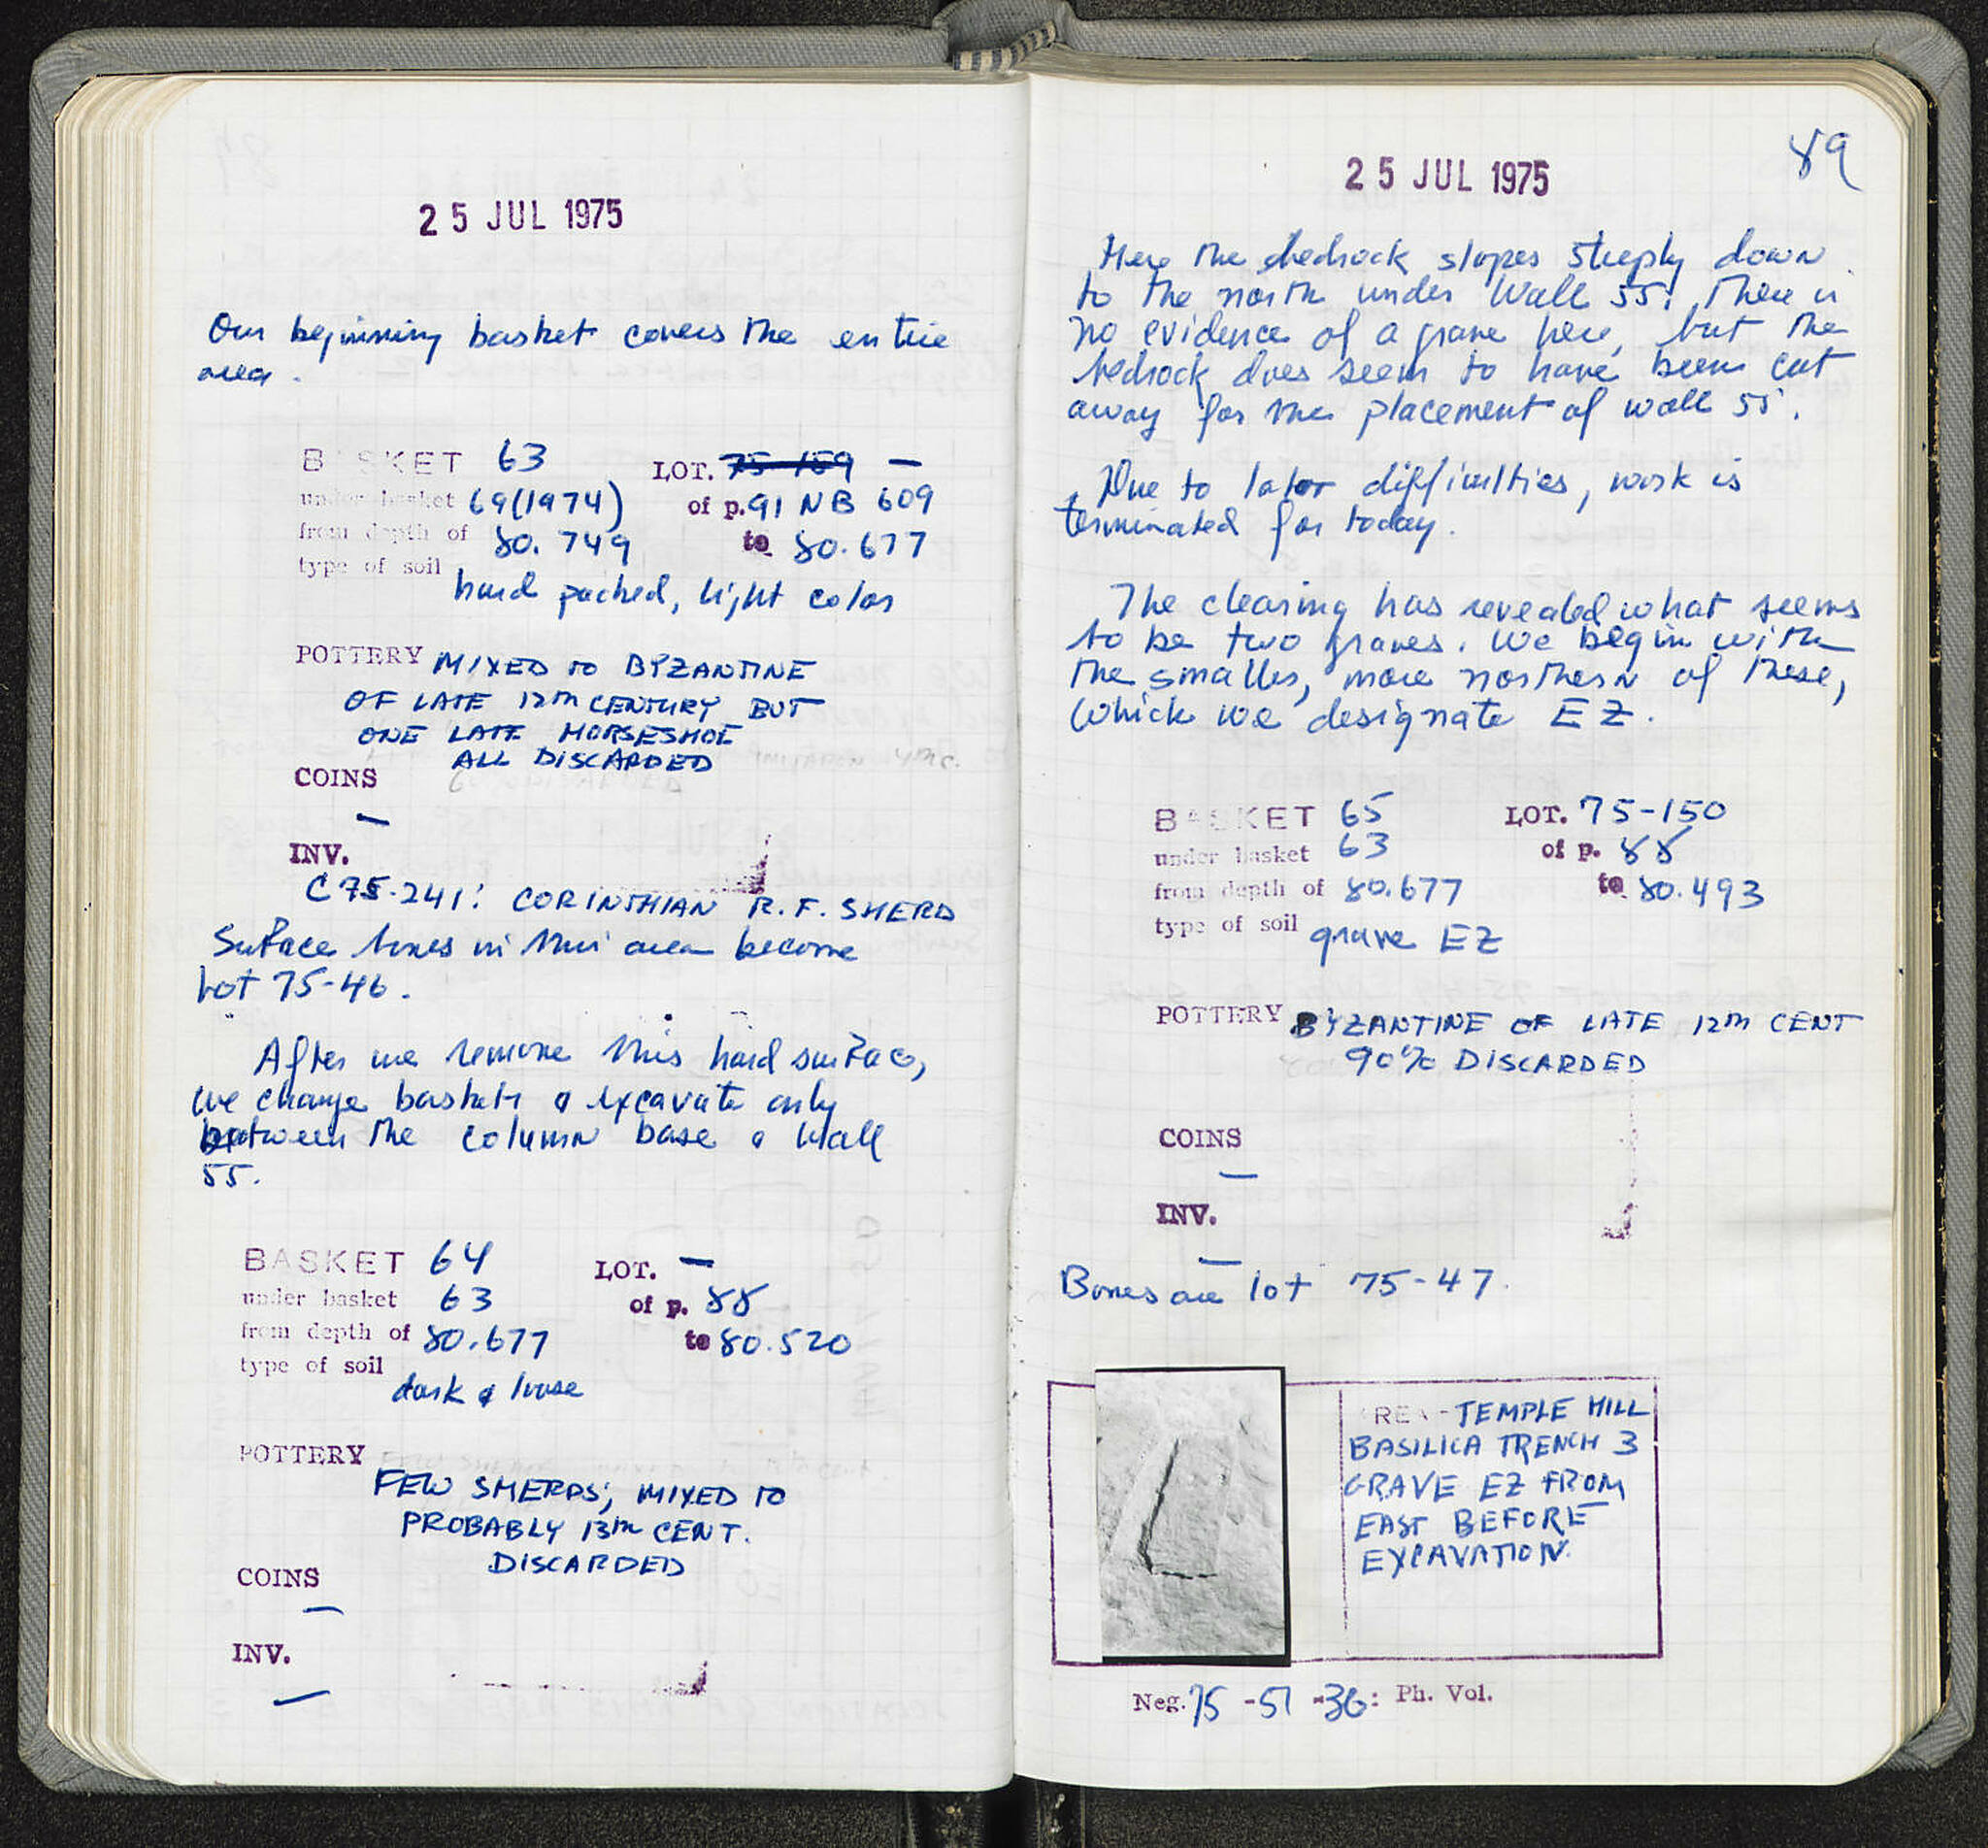 25 JUL 1975
Our beginning basket covers the entire
area.
BASKET 63 LOT. 75-159 —
under basket 69(1974) of p. 91 NB 609
from depth of 80.749 to 80.677
type of soil hard packed, light color
POTTERY MIXED TO BYZANTINE
OF LATE 12TH CENTURY BUT
ONE LATE HORSESHOE
ALL DISCARDED
COINS
—
INV.
C 75-241: CORINTHIAN R.F. SHERD
Surface bones in this area become
Lot 75-46.
After we remove this hard surface,
we change baskets & excavate only
between the column base & Wall
55.
BASKET 64 LOT. —
under basket 63 of p. 88
from depth of 80.677 to 80.520
type of soil dark & loose
POTTERY
FEW SHERDS; MIXED TO
PROBABLY 13TH CENT.
DISCARDED
COINS
—
INV.
—
89
25 JUL 1975
Here the bedrock slopes steeply down
to the north under Wall 55. There is
no evidence of a grave here, but the
bedrock does seem to have been cut
away for the placement of wall 55.
Due to labor difficulties, work is
terminated for today.
The clearing has revealed what seems
to be two graves. We begin with
the smaller, more northern of these,
which we designate EZ.
BASKET 65 LOT. 75-150
under basket 63 of p. 88
from depth of 80.677 to 80.493
type of soil grave EZ
POTTERY BYZANTINE OF LATE 12TH CENT
90% DISCARDED
COINS
—
INV.
—
Bones are lot 75-47.
AREA - TEMPLE HILL
BASILICA TRENCH 3
GRAVE EZ FROM
EAST BEFORE
EXCAVATION.
Neg. 75-51-36: Ph. Vol.